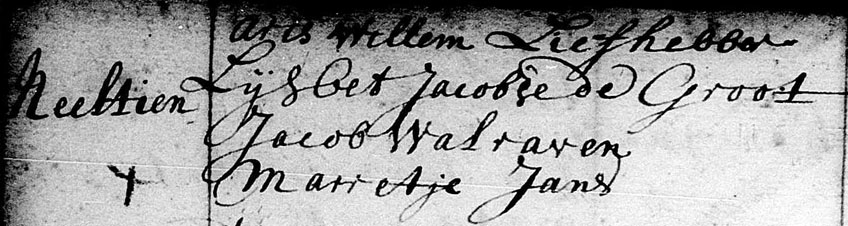 Aris Willem Liefhebber
Neeltien Lijsbet Jacobse de Groot
Jacob Walraven
Marretje Jans